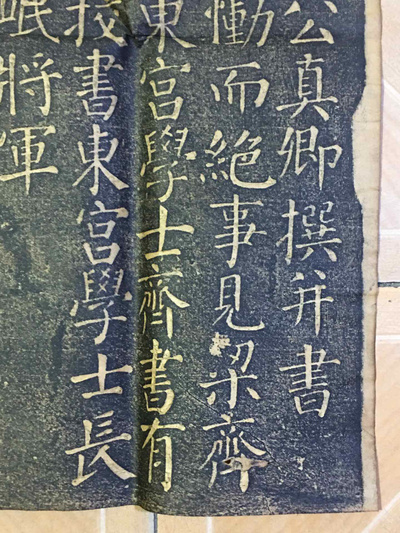 公真卿撰并書
慟而絕事見梁齊
東宮學士齊書有
挍書東宮學士長
岷將軍